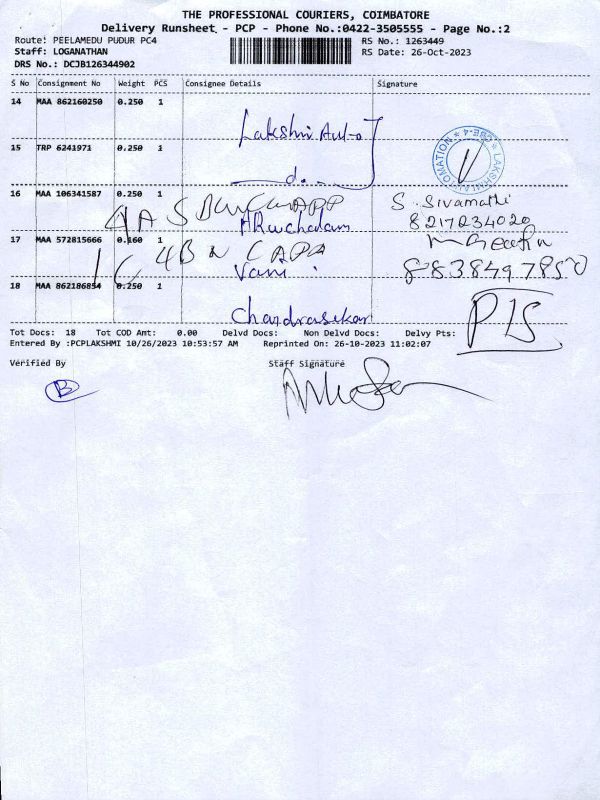 THE PROFESSIONAL COURIERS, COIMBATORE
Delivery Runsheet - PCP - Phone No.:0422-3505555 - Page No.:2
Route: PEELAMEDU PUDUR PC4
RS No.: 1263449
Staff: LOGANATHAN
RS Date: 26-Oct-2023
DRS No.: DCJB126344902
S No Consignment No Weight PCS Consignee Details Signature
14 MAA 862160250 0.250 1
Lakshmi
15 TRP 6241971 0.250 1
LAKSHMI AUTOMATION * CBE-4 *
16 MAA 106341587 0.250 1
S. Sivamathi
8217234020
17 MAA 572815666 0.160 1
Vani
8838497850
18 MAA 862186854 0.250 1
Chandrasekar
PLS
Tot Docs: 18 Tot COD Amt: 0.00 Delvd Docs: Non Delvd Docs: Delvy Pts:
Entered By :PCPLAKSHMI 10/26/2023 10:53:57 AM Reprinted On: 26-10-2023 11:02:07
Verified By Staff Signature
B